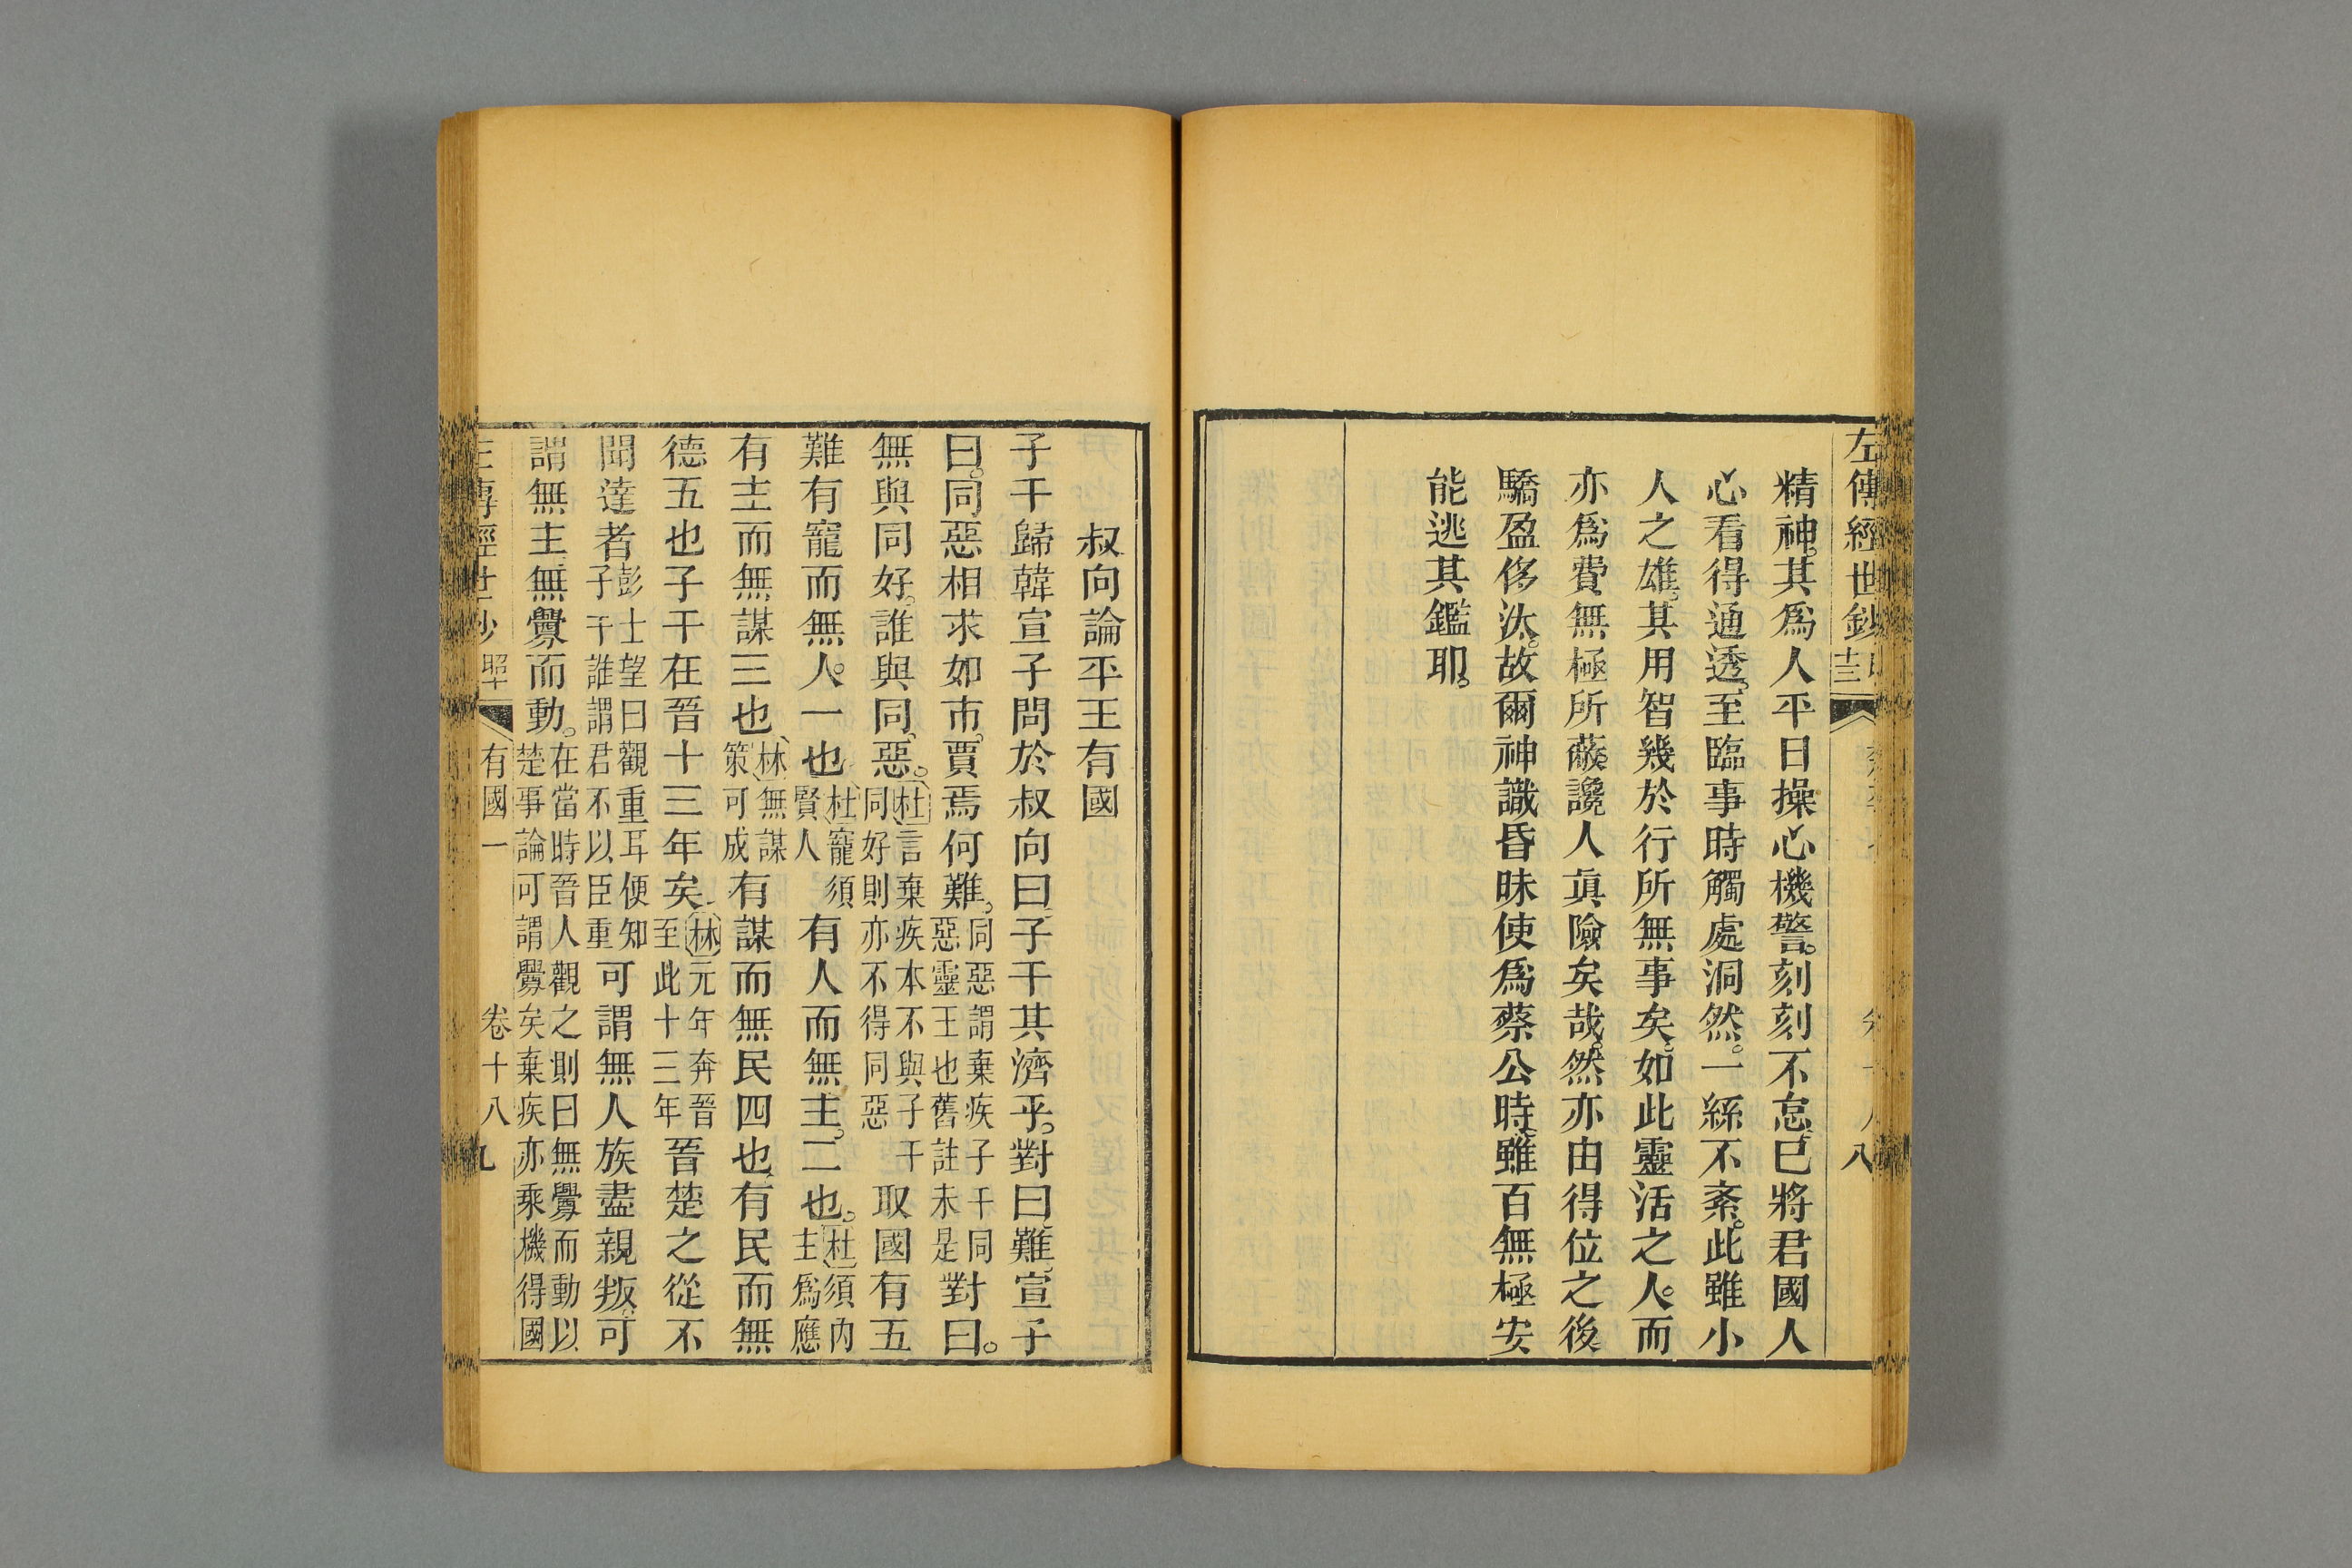 左傳經世鈔
八
精神。其為人平日操心機警。刻刻不怠。巳將君國人
心看得通透。至臨事時觸處洞然。一絲不紊。此雖小
人之雄。其用智幾於行所無事矣。如此靈活之人。而
亦為費無極所蔽。讒人眞險矣哉。然亦由得位之後
驕盈侈汰。故爾神識昏昧使為蔡公時。雖百無極安
能逃其鑑耶。
叔向論平王有國
子干歸韓宣子問於叔向曰子干其濟乎。對曰難。宣子
曰。同惡相求如市。賈焉何難。同惡謂棄疾子干同惡靈王也舊註未是對曰。
無與同好。誰與同惡。杜言棄疾本不與子干同好則亦不得同惡取國有五
難有寵而無人。一也杜寵須賢人有人而無主。二也。杜須内主為應
有主而無謀三也、林無謀策可成有謀而無民四也、有民而無
德五也子干在晉十三年矣、林元年奔晉至此十三年晉楚之從不
聞達者彭士望曰觀重耳便知子干誰謂君不以臣重可謂無人族盡親叛。可
謂無主、無釁而動。在當時晉人觀之則曰無釁而動以楚事論可謂釁矣棄疾亦乘機得國
有國一 卷十八